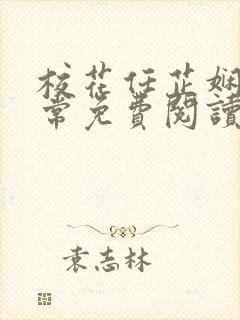 校花任芷娴
常免費閱讀
袁志林